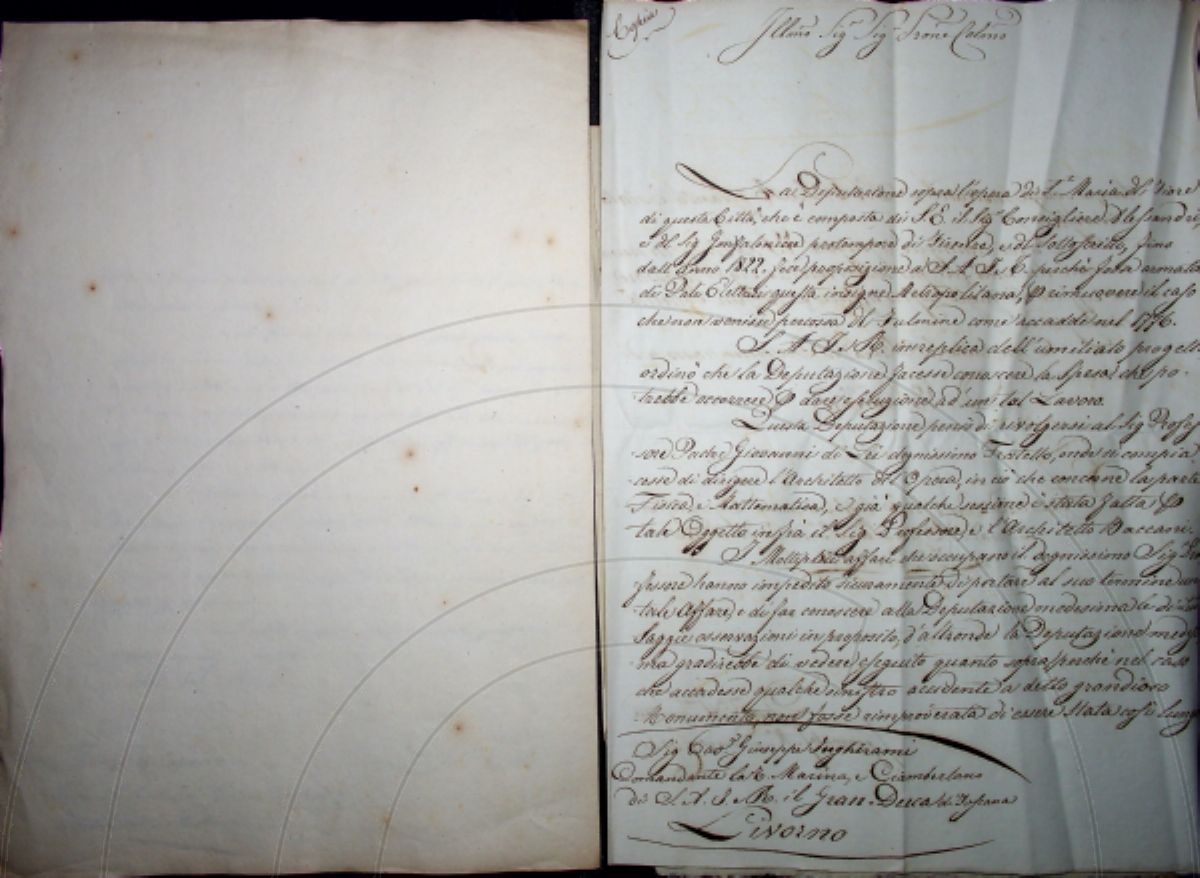 Copia
Illmo Sig.r Sig.r Prone Colmo
La Deputazione sopra l'opera di S.a Maria del Fiore
di questa Città, che è composta di S. E. il Sig.r Consigliere Alessandri,
e del Sig Gonfaloniere protempore di Firenze, e del Sottoscritto, fino
dall'Anno 1822. fece proposizione a S. A. I. e R. perchè fosse armata
di Pali Elettrici questa insigne Metropolitana, P rimuovere il caso
che non venisse percossa dal Fulmine come accadde nel 1776.
S. A. I. e R. in replica dell'umiliato progetto
ordinò che la Deputazione facesse conoscere la Spesa, che po-
trebbe occorrere P dare esecuzione ad un tal Lavoro.
Questa Deputazione pensò di rivolgersi al Sig Profes-
sore Padre Giovanni di Lei degnissimo Fratello, onde si compia-
cesse di dirigere l'Architetto dell'Opera, in ciò che concerne la parte
Fisica, e Mattematica, e già qualche sessione è stata fatta P
tale Oggetto infra il Sig Professore, e l'Architetto Baccani
I Moltiplici affari che occupano il degnissimo Sig Pro
fessore hanno impedito sicuramente di portare al suo termine un
tale Affare, e di far conoscere alla Deputazione medesima le di Lui
Saggie osservazioni in proposito, d'altronde la Deputazione mede
ma gradirebbe di vedere eseguito quanto sopra, perchè nel caso
che accadesse qualche sinistro accidente a detto grandioso
Monumento, non fosse rimproverata di essere stata così lunga
Sig Cav.r Giuseppe Inghirami
Comandante la R. Marina, e Ciamberlano
di S. A. I. e R. il Gran-Duca di Toscana
Livorno